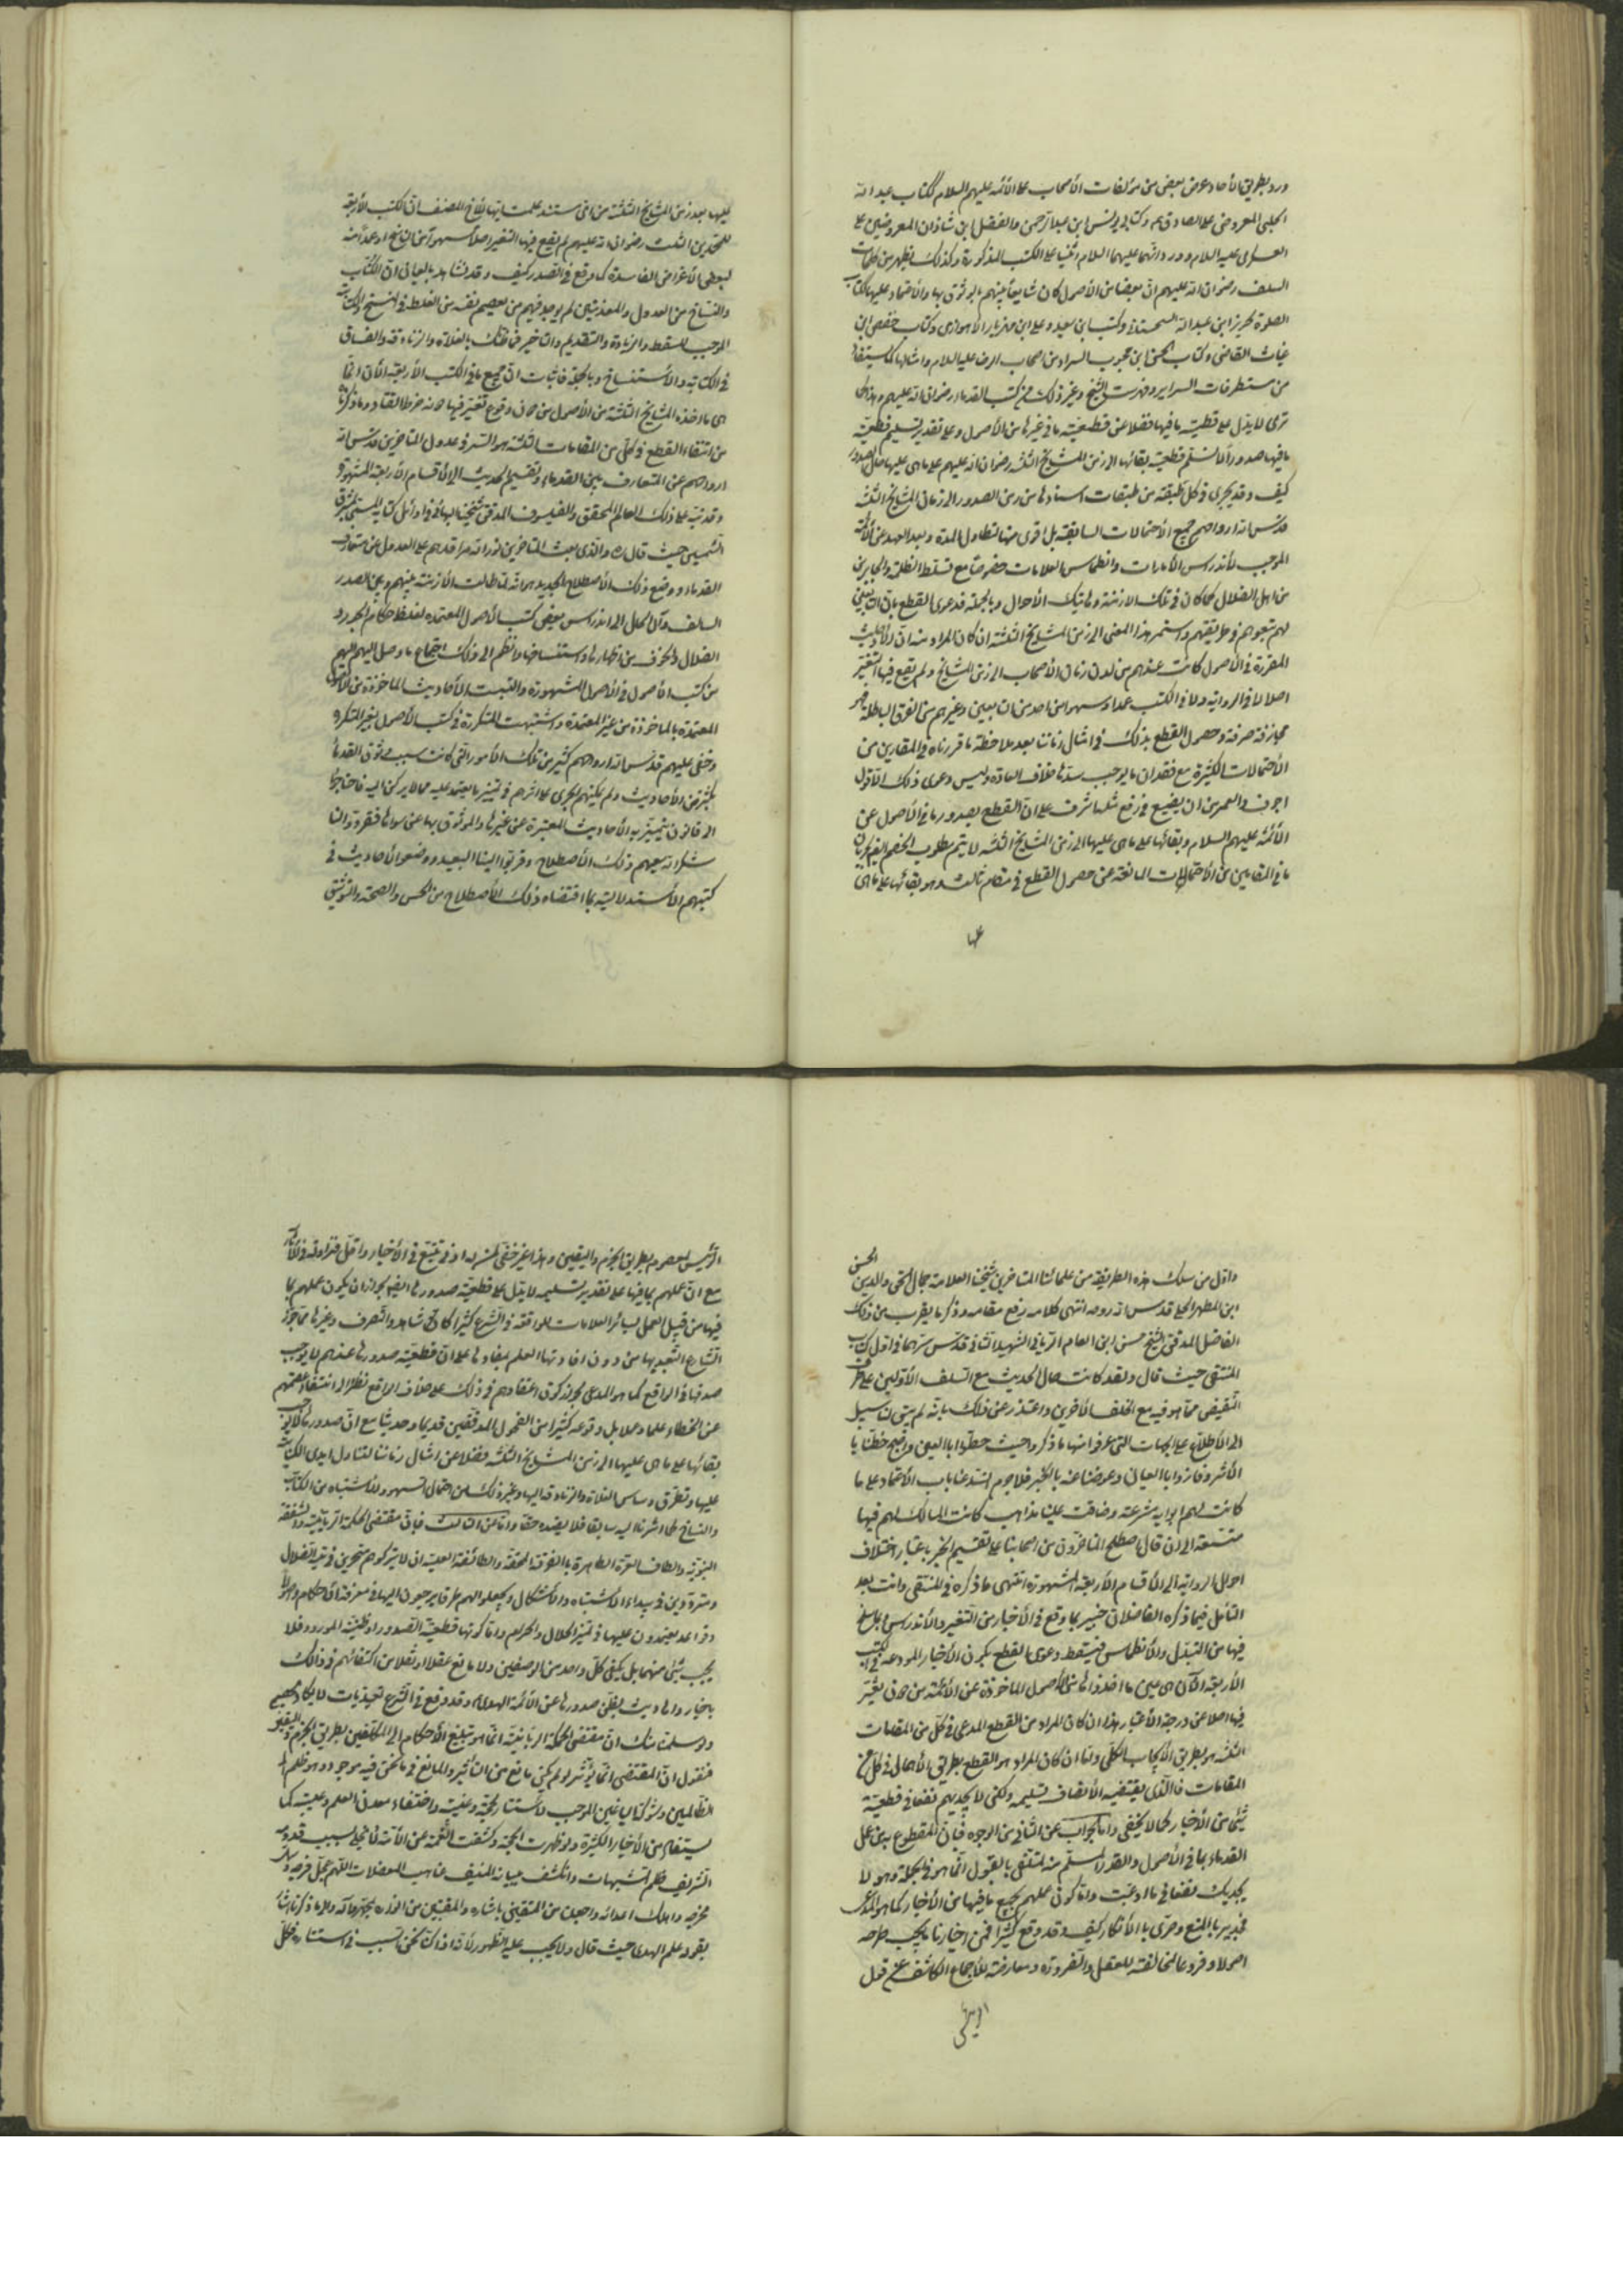 ورد بطريق الآحاد عرض بعض من مؤلفات الأصحاب على الأئمة عليهم السلام ككتاب عبد الله
الحلبي المعروض على الصادق ع وكتابي يونس ابن عبد الرحمن والفضل ابن شاذان المعروضين على
العسكري عليه السلام وورد انهما عليهما السلام أثنيا على الكتب المذكورة وكذلك يظهر من كلمات
السلف رضوان الله عليهم ان بعضا من الأصول كان شايعا بينهم الوثوق بها والاعتماد عليها ككتاب
الصلوة لحريز ابن عبد الله السجستاني وكتب ابن سعيد وعلي ابن مهزيار الأهوازي وكتاب حفص ابن
غياث القاضي وكتاب الحسن ابن محبوب السراد من اصحاب الرضا عليه السلام وامثالها كما يستفاد
من مستطرفات السراير وفهرست الشيخ وغير ذلك من كتب القدماء رضوان الله عليهم وهذا كما
ترى لا يدل على قطعية ما فيها فضلا عن قطعية ما في غيرها من الأصول وعلى تقدير تسليم قطعية
ما فيها صدورا لا نسلم قطعية بقائها الى زمن المشايخ الثلثة رضوان الله عليهم على ما هي عليها حال الصدور
كيف وقد يجري في كل طبقة من طبقات اسنادها من زمن الصدور الى زمان المشايخ الثلثة
قدس الله ارواحهم جميع الأحتمالات السابقة بل اقوى منها لتطاول المدة وبعد العهد عن الأئمة
الموجب لأندراس الأمارات وانطماس العلامات خصوصا مع تسلط الظلمة والجابرين
من اهل الضلال كما كان في تلك الازمنة وهاتيك الأحوال وبالجملة فدعوى القطع بان
لهم تعوهم وطريقتهم واستمر هذا المعنى الى زمن المشايخ الثلثة ان كان المراد منه ان الأحاديث
المقررة في الأصول كانت عندهم من لدن زمان الأصحاب الى زمن المشايخ ولم يقع فيها التغير
اصلا لا في الرواية ولا في الكتب عمدا وسهوا من احد من التابعين وغيرهم من الفرق الباطلة فهو
مجازفة صرفة وحصول القطع بذلك في امثال زماننا بعد ملاحظة ما قررناه في المقامين من
الأحتمالات الكثيرة مع فقدان ما يوجب سدها خلاف العادة وليس دعوى ذلك الا قول
اجوف والعمر من ان يضيع في رفع مثلها اشرف على ان القطع بصدور ما في الأصول عن
الأئمة عليهم السلام وبقائها على ما هي عليها الى زمن المشايخ الثلثة لا يتم مطلوب الخصم لقيام
ما في المقامين من الأحتمالات المانعة عن حصول القطع في مقام ثالث وهو بقائها على ما هي
عليها
عليها بعد زمن المشايخ الثلثة من اين مستند علمت انها بلاغ المصنفات الكتب الأربعة
للمحمدين الثلث رضوان الله عليهم لم يقع فيها التغير اصلا سهوا من الناسخ او عمدا منه
لبعض الأغراض الفاسدة كما وقع في الصدر كيف وقد نشاهد بالعيان ان الكتّاب
والنساخ من العدول والمعدنين لم يوجد فيهم من يعصم نفسه من الغلط في النسخ والكتابة
الموجب للسقط والزيادة والتقديم والتأخير فما ظنك بالغلاة والزنادقة والفساق
في الكتابة والأستنساخ وبالجملة فاثبات ان جميع ما في الكتب الأربعة الأن انما
هي ما اخذه المشايخ الثلثة من الأصول من دون وقوع تغيير فيها دونه خرط القتاد وما ذكرنا
من انتفاء القطع في كل من المقامات الثلثة هو السر في عدول المتأخرين قدس الله
ارواحهم عن المتعارف بين القدماء وتقسيم الحديث الى الأقسام الأربعة المشهورة
وقد نبه على ذلك العالم المحقق والفيلسوف المدقق شيخنا البهائي في اوائل كتابه المسمى بمشرق
الشمسين حيث قال ره والذي بعث المتأخرين نور الله مراقدهم على العدول عن متعارف
القدماء ووضع ذلك الأصطلاح الجديد هو انه لما طالت الأزمنة بينهم وبين الصدر
السلف وآل الحال الى اندراس بعض كتب الأصول المعتمدة لتسلط حكام الجور و
الضلال والخوف من اظهارها واستنساخها وانظم الى ذلك اجتماع ما وصل اليهم
من كتب الأصول في الأصول المشهورة والتبست الأحاديث المأخوذة من الأصول
المعتمدة بالمأخوذة من غير المعتمدة واشتبهت المتكررة في كتب الأصول بغير المتكررة
وخفي عليهم قدس الله ارواحهم كثير من تلك الأمور التي كانت سبب وثوق القدماء
بكثير من الأحاديث ولم يمكنهم الجري على اثرهم في تمييز ما يعتمد عليه مما لا يركن اليه فاحتاجوا
الى قانون يتميز به الأحاديث المعتبرة عن غيرها والموثوق بها عن سواها فقرروا لنا
شكر الله سعيهم ذلك الأصطلاح وقربوا الينا البعيد ووضعوا الأحاديث في
كتبهم الأستدلالية بما اقتضاه ذلك الأصطلاح من الحسن والصحة والتوثيق
واول من سلك هذه الطريقة من علمائنا المتأخرين شيخنا العلامة جمال الحق والدين الحسن
ابن المطهر الحلي قدس الله روحه انتهى كلامه رفع مقامه وذكر ما يقرب من ذلك
الفاضل المدقق الشيخ حسن ابن العالم الرباني الشهيد الثاني قدس سرهما في اول كتاب
المنتقى حيث قال ولقد كانت حال الحديث مع السلف الأولين على طرف
النقيض مما هو فيه مع الخلف الآخرين واعتذر عن ذلك بانه لم يبق لنا سبيل
الى الأطلاع على الجهات التي عرفوا منها ما ذكروا حيث حظوا بالعين واصبح حظنا
الأثر وفازوا بالعيان وعوضنا عنه بالخبر فلا جرم انسد عنا باب الأعتماد على ما
كانت لهم ابوابه مشرعة وضاقت علينا مذاهب كانت المسالك لهم فيها
متسعة الى ان قال اصطلح المتأخرون من اصحابنا على تقسيم الخبر باعتبار اختلاف
احوال الرواية الى الأقسام الأربعة المشهورة انتهى ما ذكره في المنتقى وانت بعد
التأمل فيما ذكره الفاضلان خبير بما وقع في الأخبار من التغير والأندراس وما بلغ
فيها من التبدل والأنطماس فيسقط دعوى القطع بكون الأخبار المودعة في الكتب
الأربعة الآن هي عين ما اخذوها من الأصول المأخوذة عن الأئمة من دون تغير
فيها اصلا عن درجة الأعتبار هذا ان كان المراد من القطع المدعى في كل من المقامات
الثلثة هو بطريق الأيجاب الكلي واما ان كان المراد هو القطع بطريق الأهمال في كل من
المقامات فالذي يقتضيه الأنصاف تسليمه ولكن لا يجديهم نفعا في قطعية
شيء من الأخبار كما لا يخفى واما الجواب عن الثاني من الوجوه فبان المقطوع به من عمل
القدماء بما في الأصول والقدر المسلم منه المتلقى بالقبول انما هو في الجملة وهو لا
يجديك نفعا في ما ادعيت واما كون عملهم بجميع ما فيها من الأخبار كما هو المدعى
فجدير بالمنع وحري بالأنكار كيف وقد وقع كثيرا فمن اخبارنا ما يجب طرحه
اصولا وفروعا لمخالفته للعقل والضرورة ومعارضته للأجماع الكاشف عن قول
الرئيس
الرئيس المعصوم بطريق الجزم واليقين وهذا غير خفي لمن له ادنى تتبع في الأخبار واقل مزاولة في الأثار
مع ان عملهم بما فيها على تقدير تسليمه لا يدل على قطعية صدورها اليهم لجواز ان يكون عملهم بما
فيها من قبيل العمل بسائر العلامات الواقعة في الشرع كثيرا كاليد والشاهد والتصرف وغيرها مما جوز
الشارع التعبد بها من دون افادتها العلم بمفادها على ان قطعية صدورها عندهم لا يوجب
صدقها في الواقع كما هو المدعى لجواز كون اعتقادهم في ذلك على خلاف الواقع نظرا الى انتفاء عصمتهم
عن الخطاء علما وعملا بل وقوعه كثيرا من الفحول المدققين قديما وحديثا مع ان صدورها لا يوجب
بقائها على ما هي عليها الى زمن المشايخ الثلثة فضلا عن امثال زماننا لتناول ايدي الكتاب
عليها وتطرق دسائس الغلاة والزنادقة اليها وغير ذلك من احتمال السهو والأشتباه من الكتاب
والنساخ كما اشرنا اليه سابقا فلا يفيده حقا واما عن الثالث فبان مقتضى الحكمة الربانية والشفقة
النبوية والطاف العترة الطاهرة بالفرقة المحقة والطائفة العلية ان لا يتركوهم متحيرين في تيه الضلال
ومترددين في بيداء الأشتباه والأشكال ويجعلوا لهم طرقا يرجعون اليها في معرفة الأحكام واصولا
وقواعد يعتمدون عليها في تميز الحلال والحرام واما كونها قطعية الصدور او ظنية الورود فلا
يجب شيء منهما بل يكفي كل واحد من الوصفين ولا مانع عقلا ونقلا من اكتفائهم في ذلك
باخبار واحاديث يظن صدورها عن الأئمة الهداة وقد وقع في الشرع تعبديات لا يكاد يحصى
ولو سلمنا منك ان مقتضى الحكمة الربانية انما هو تبليغ الأحكام الى المكلفين بطريق الجزم واليقين
فنقول ان المقتضي انما يؤثر لو لم يكن مانع من التأثير والمانع في ما نحن فيه موجود وهو ظلم
الظالمين وشوكة الباغين الموجب لأستتار الحجة وغيبته واختفاء معدن العلم وعيبته كما
يستفاد من الأخبار الكثيرة ولو ظهرت الحجة وكشفت الغمة عن الأمة لأنجلى بسبب قدومه
الشريف ظلم الشبهات وانكشف ببيانه المنيف غياهب المعضلات اللهم عجل فرجه وسهل
مخرجه واهلك اعدائه واجعلنا من المتيقنين باشاره والمقتبسين من انواره بمحمد وآله والى ما ذكرنا اشار
بقوله علم الهدى حيث قال ولا يجب عليه الظهور لأنه اذا كنا نحن السبب في استتاره فكل